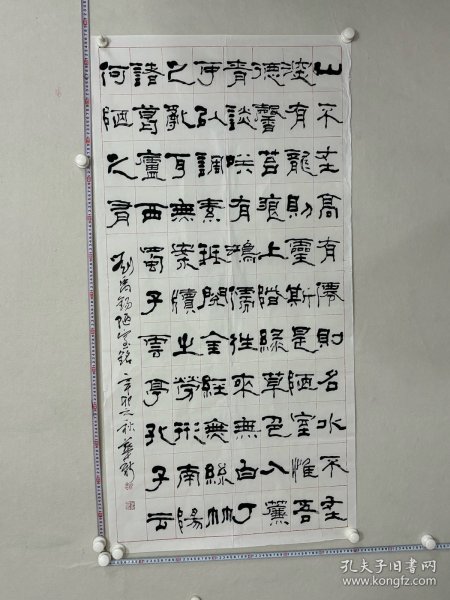 山不在高有僊則名水不在
深有龍則靈斯是陋室惟吾
德馨苔痕上階綠草色入簾
青談笑有鴻儒往來無白丁
可以調素琴閱金經無絲竹
之亂耳無案牘之勞形南陽
諸葛廬西蜀子雲亭孔子云
何陋之有
劉禹錫陋室銘 辛卯之秋
孔夫子旧书网
www.kongfz.com